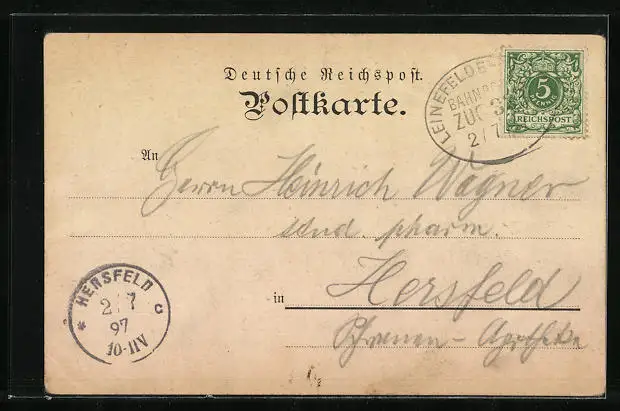 Deutsche Reichspost.
Postkarte.
LEINEFELDE
BAHNPOST
ZUG 3
2/7
5
PFENNIG
REICHSPOST
An
Herrn Heinrich Wagner
stud. pharm.
in Hersfeld
Schwanen-Apotheke
HERSFELD
2/7
97
10-11V
* C